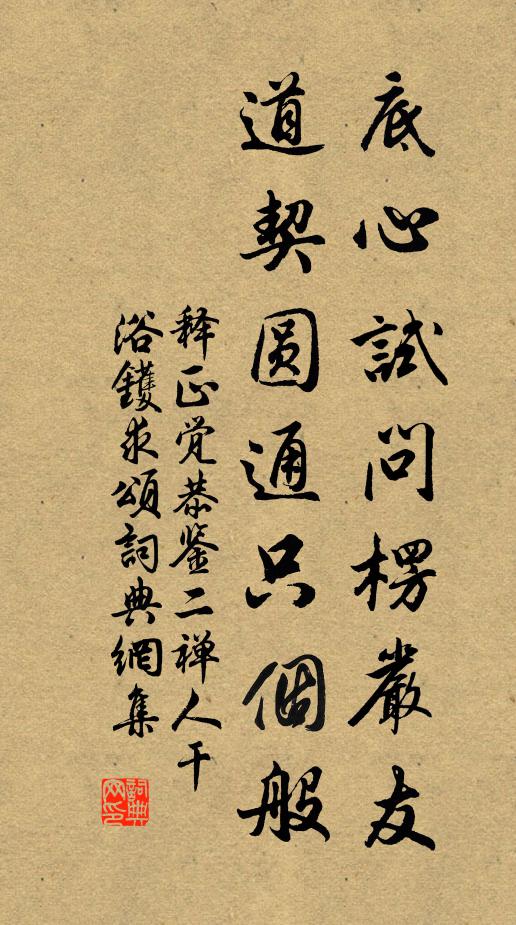 底心試問楞嚴友
道契圆通只個般
释正觉恭鉴二禅人干
浴鑊求頌詞典網集
詞典网印